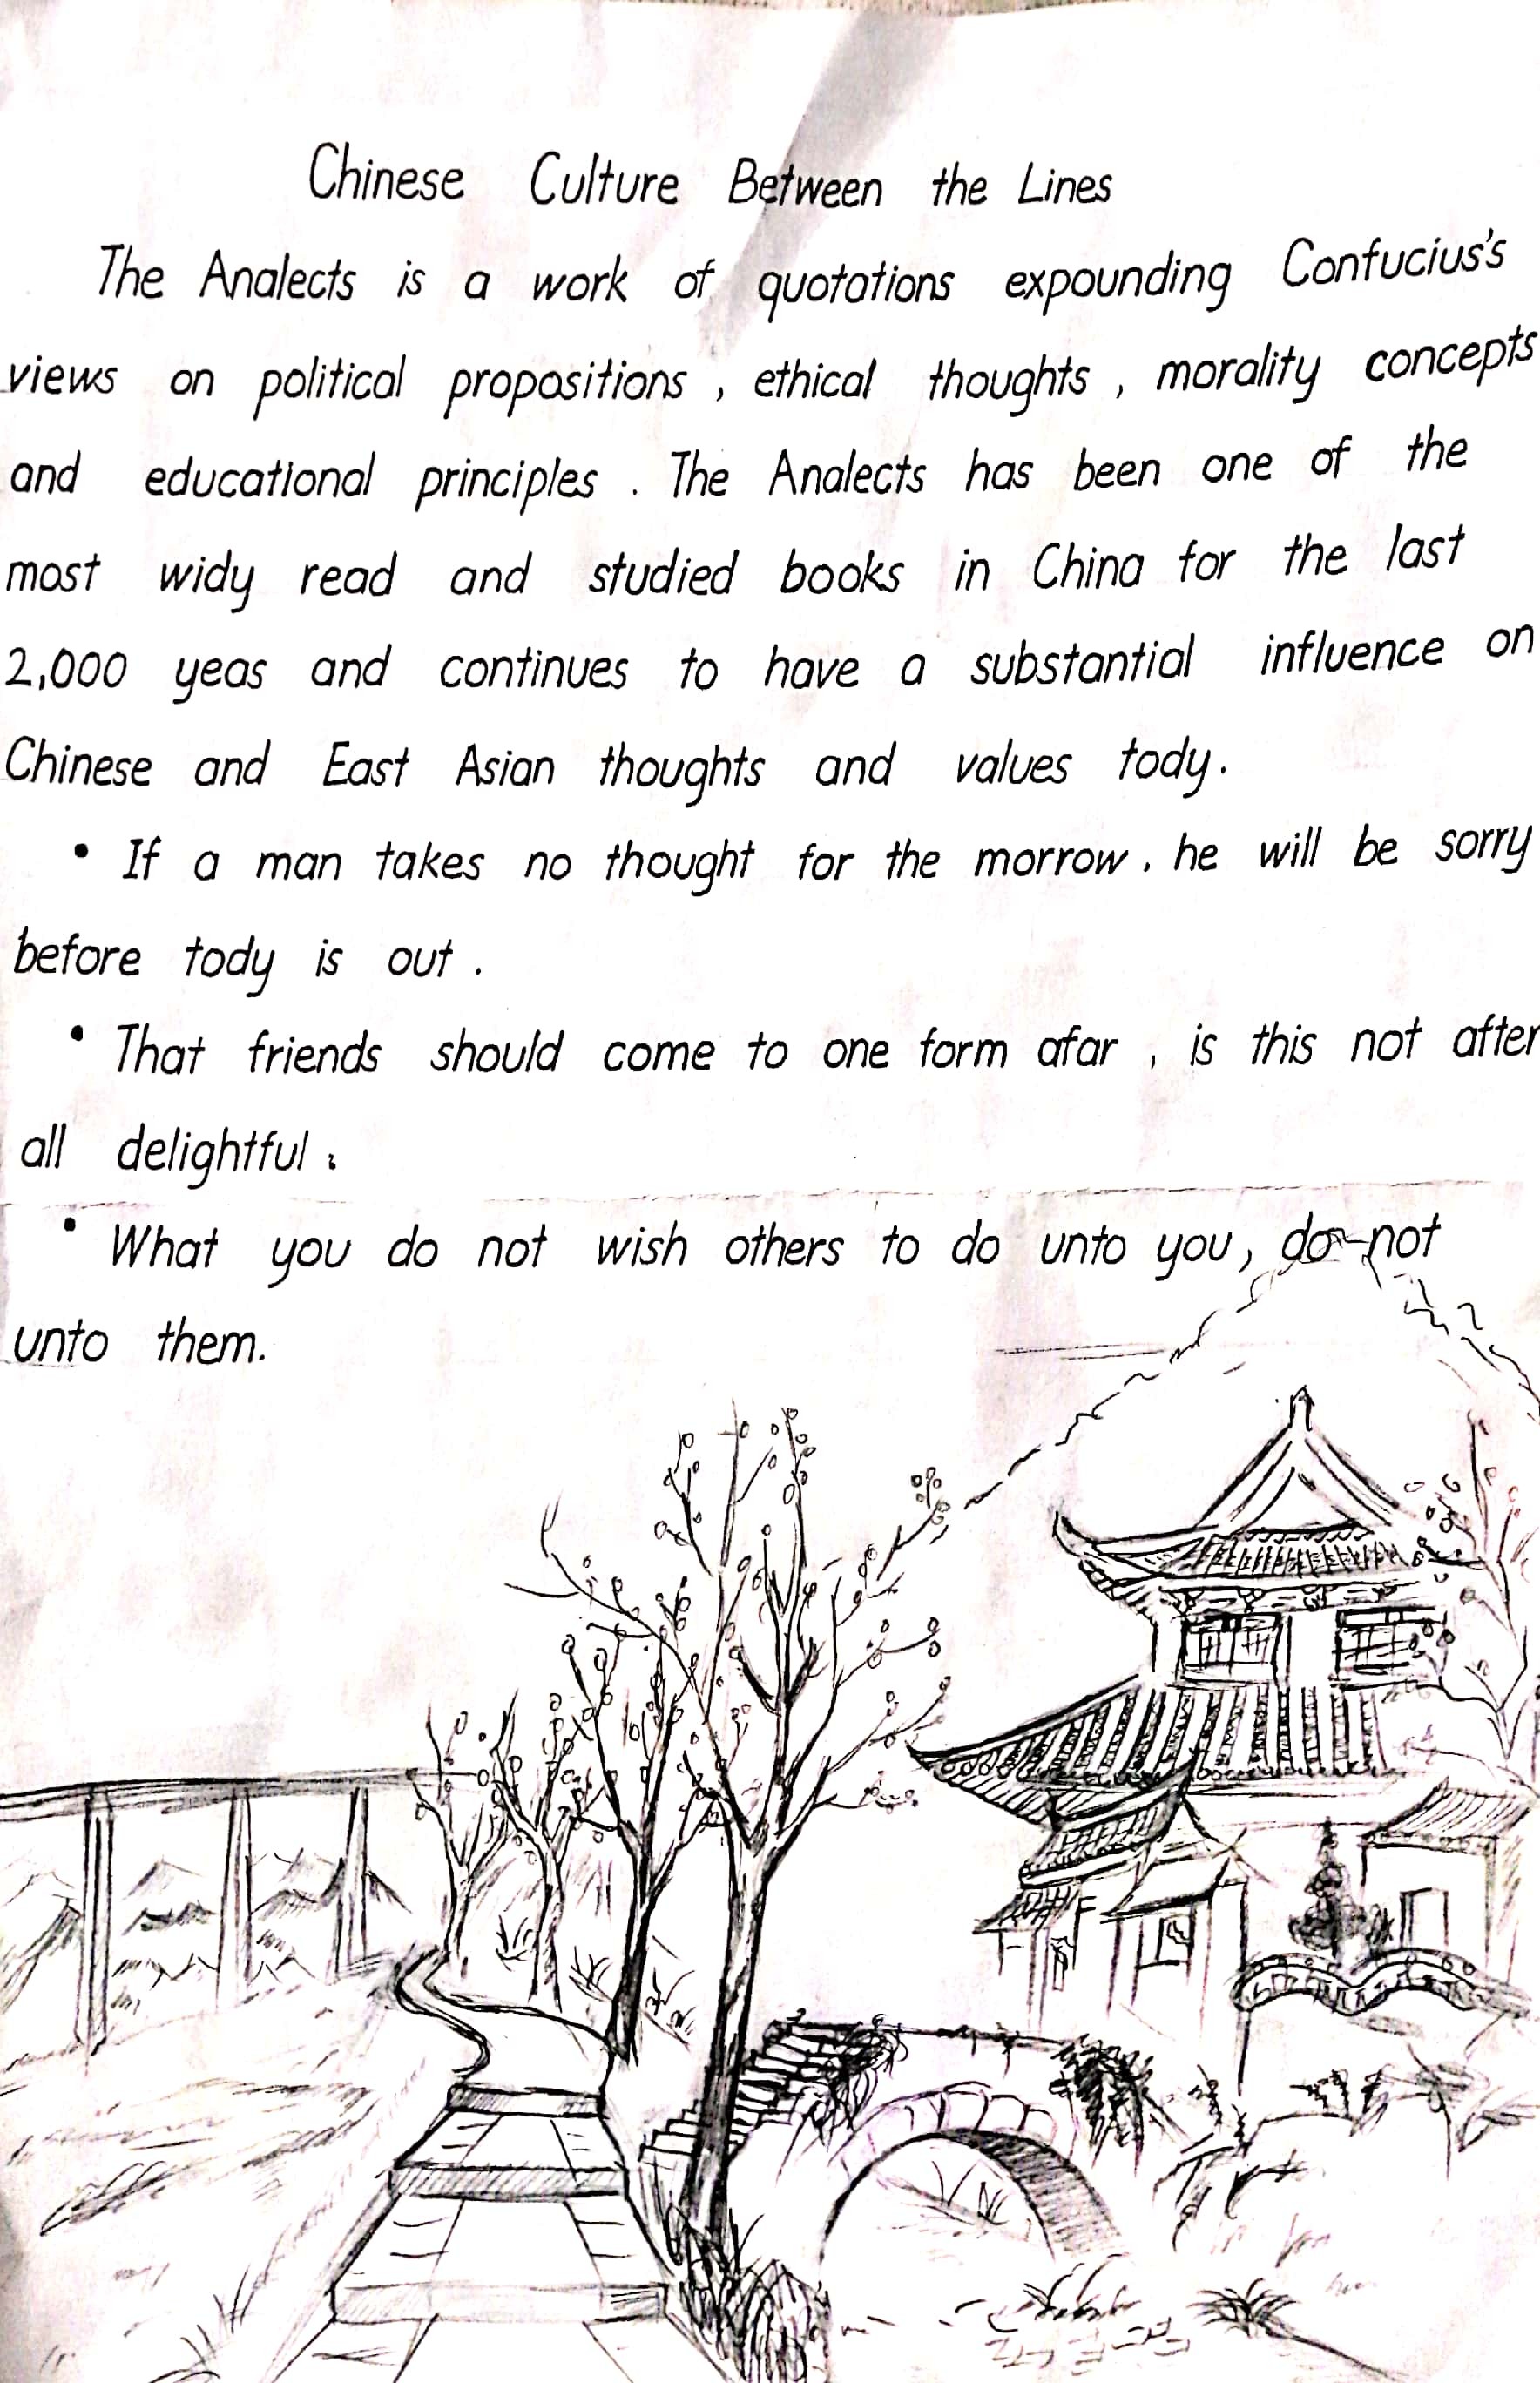 Chinese Culture Between the Lines
The Analects is a work of quotations expounding Confucius's
views on political propositions , ethical thoughts , morality concepts
and educational principles . The Analects has been one of the
most widy read and studied books in China for the last
2,000 yeas and continues to have a substantial influence on
Chinese and East Asian thoughts and values tody.
• If a man takes no thought for the morrow . he will be sorry
before tody is out .
• That friends should come to one form afar , is this not after
all delightful .
• What you do not wish others to do unto you, do not
unto them.